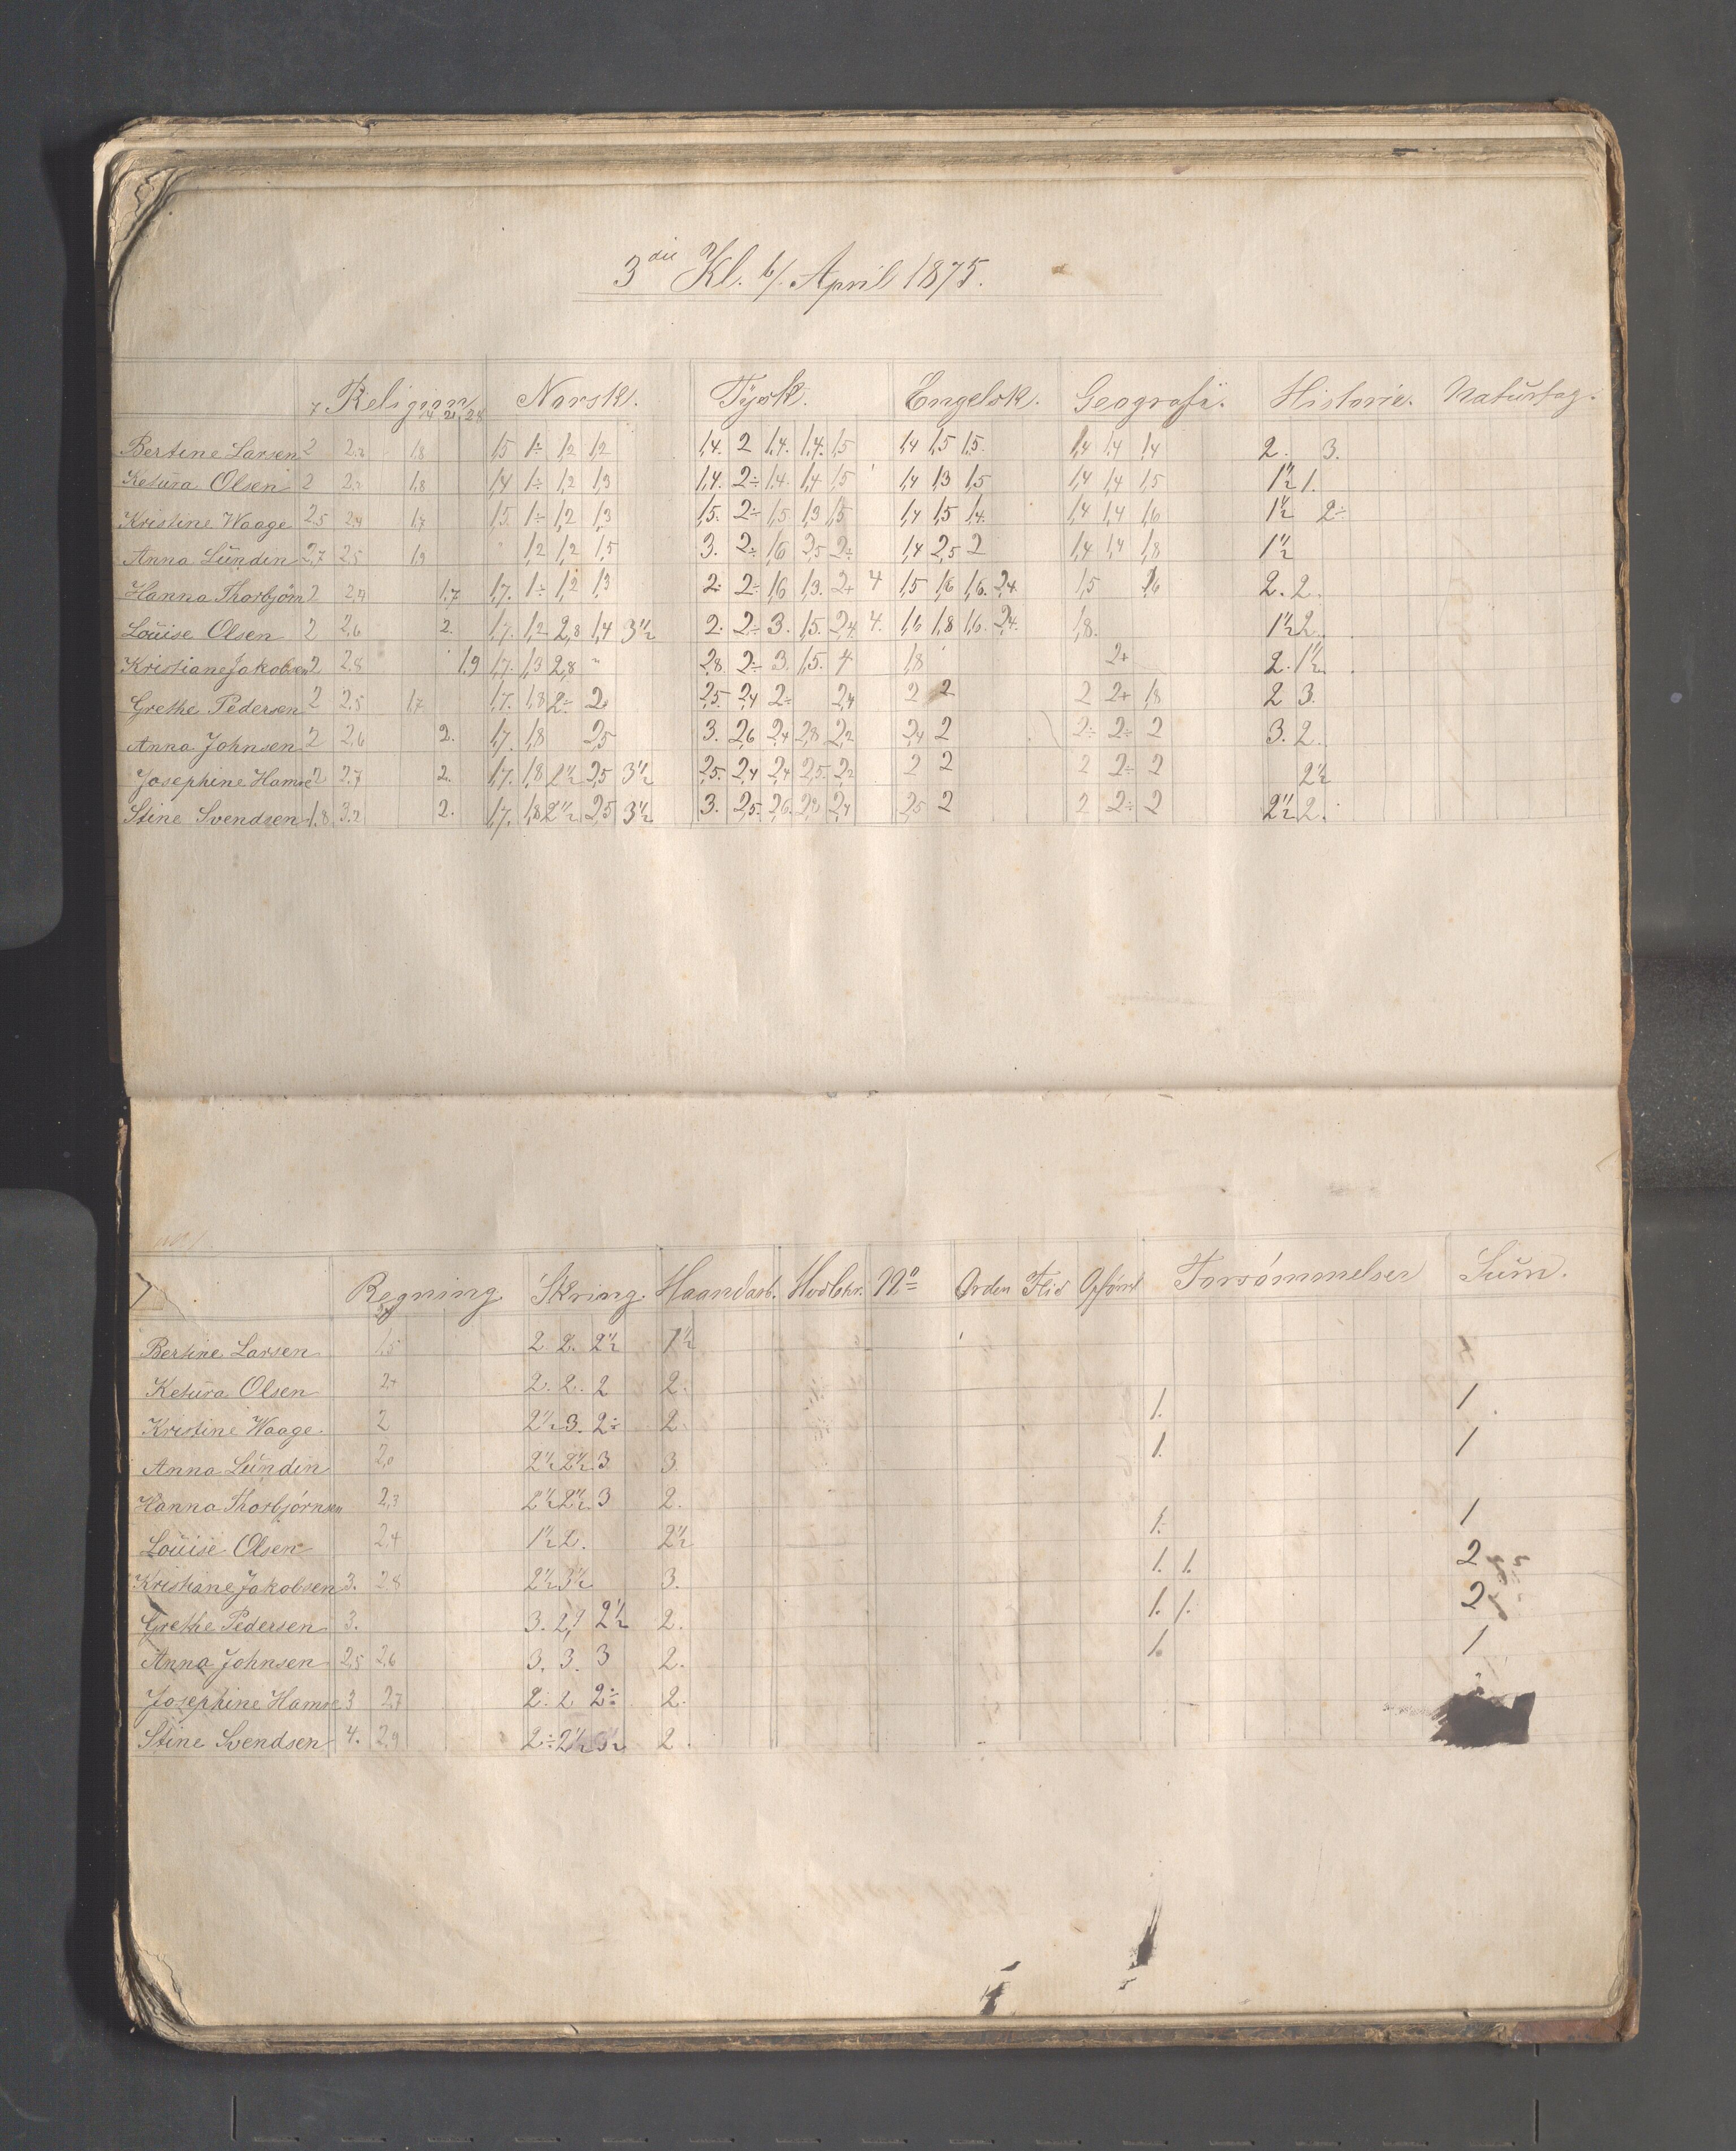 3die Kl. 6/. April 1875.
Religion Norsk. Tysk. Engelsk. Geografi. Historie. Naturfag.
7 14 21 28
Bertine Larsen 2 2.2 1,8 1,5 1÷ 1,2 1,2 1,4. 2 1,4. 1,4. 1,5 1,4 1,5 1,5. 1,4 1,4 1,4 2. 3.
Ketura Olsen 2 2.2 1,8 1,4 1÷ 1,2 1,3 1,4. 2÷ 1,4. 1,4 1,5 1,4 1,3 1,5 1,4 1,4 1,5 1½ 1.
Kristine Waage 2,5 2,4 1,7 1,5. 1÷ 1,2 1,3 1,5. 2÷ 1,5 1,3 1,5 1,4 1,5 1,4. 1,4 1,4 1,6 1½ 2÷
Anna Lundin 2,7 2,5 1,9 " 1,2 1,2 1,5 3. 2÷ 1,6 2,5 2÷ 1,4 2,5 2 1,4 1,4 1,8 1½
Hanna Thorbjörn 2 2,4 1,7 1,7. 1÷ 1,2 1,3 2÷ 2÷ 1,6 1,3. 2+ 4 1,5 1,6 1,6. 2,4 1,5 1,6 2. 2.
Louise Olsen 2 2,6 2. 1,7. 1,2 2,8 1,4 3½ 2. 2÷ 3. 1,5. 2,4 4. 1,6 1,8 1,6. 2,4. 1,8. 1½ 2.
Kristiane Jakobsen 2 2.8 1.9 1,7. 1,3 2,8 " 2,8. 2÷ 3. 1,5. 4 1,8 2+ 2. 1½
Grethe Pedersen 2 2.5 1,7 1,7. 1,8 2÷ 2+ 2,5. 2,4 2÷ 2,4 2 2 2 2+ 1,8 2 3.
Anna Johnsen 2 2,6 2. 1,7. 1,8 2,5 3. 2,6 2,4 2,8 2,2 2,4 2 2÷ 2÷ 2 3. 2.
Josephine Hamre 2 2.7 2. 1,7. 1,8 2½ 2,5 3½ 2,5. 2,4 2,4 2,5. 2,2 2 2 2 2÷ 2 2½
Stine Svendsen 1.8 3.2 2. 1,7. 1,8 2½ 2,5 3½ 3. 2,5. 2,6. 2,8 2,4 2,5 2 2 2÷ 2 2½ 2.
Regning Skrivng. Haandarb. No Orden Flid Opförsel Forsömmelser Sum.
Bertine Larsen 1,5 2 2. 2½ 1½
Ketura Olsen 2+ 2. 2. 2 2. 1. 1
Kristine Waage. 2 2½ 3. 2÷ 2. 1. 1
Anna Lundin 2,0 2½ 2½ 3 3.
Hanna Thorbjörnsen 2,3 2½ 2½ 3 2. 1. 1
Louise Olsen 2,4 1½ 2. 2½ 1. 1. 2
Kristiane Jakobsen 3. 2.8 2½ 3½ 3. 1. 1. 2
Grethe Pedersen 3. 3. 2,7 2½ 2. 1. 1
Anna Johnsen 2,5 2,6 3. 3. 3 2.
Josephine Hamre 3 2,7 2. 2 2÷ 2.
Stine Svendsen 4. 2,9 2÷ 2½ 3½ 2.